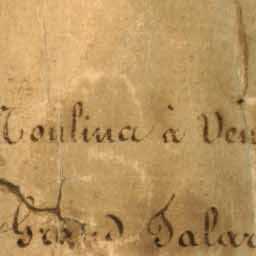 Moulina à Ven
Grand Talar